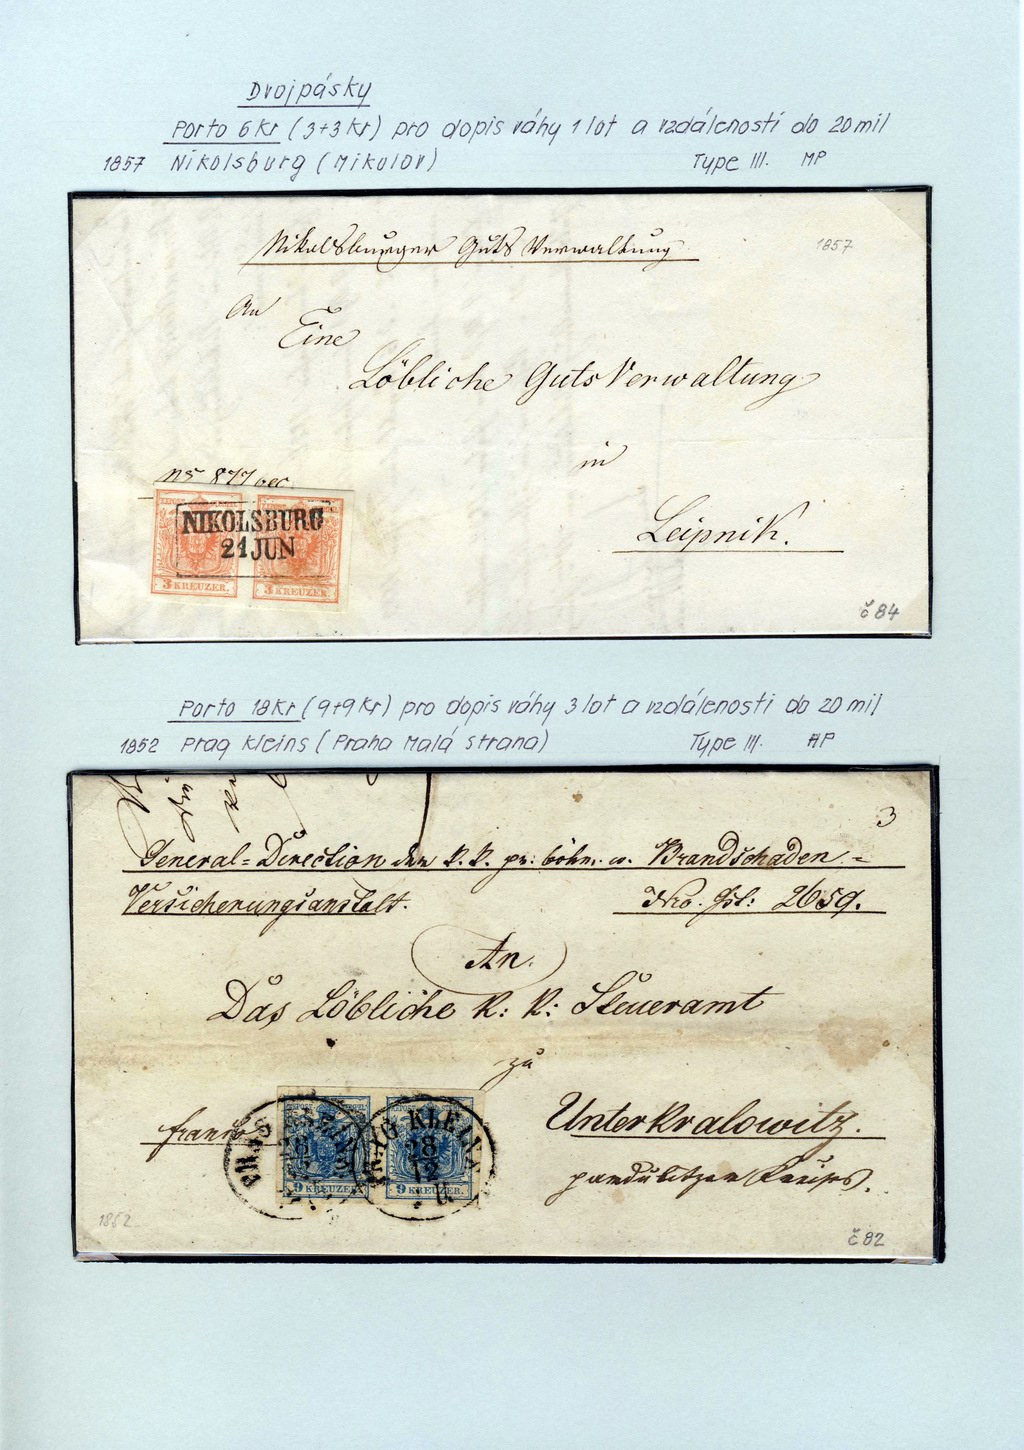 Dvojpásky
Porto 6 Kr (3+3 Kr) pro dopis váhy 1 lot a vzdálenosti do 20 mil
1857 Nikolsburg (Mikulov) Type III. MP
Nikolsburger Guts Verwaltung
1857
An
Eine
Löbliche Guts Verwaltung
in
Leipnik.
877
NIKOLSBURG
21 JUN
3 KREUZER. 3 KREUZER.
č 84
Porto 18 Kr (9+9 Kr) pro dopis váhy 3 lot a vzdálenosti do 20 mil
1852 Prag Kleins (Praha Malá Strana) Type III. HP
3
General=Direction der k.k. pr: böhm: Brandschaden=
Versicherungsanstalt. Nro. 2659.
An.
Das Löbliche k: k: Steueramt
zu
franko
Unterkralowitz.
PRAG KLEINS
18
12
9 KREUZER. 9 KREUZER.
1852
č 82